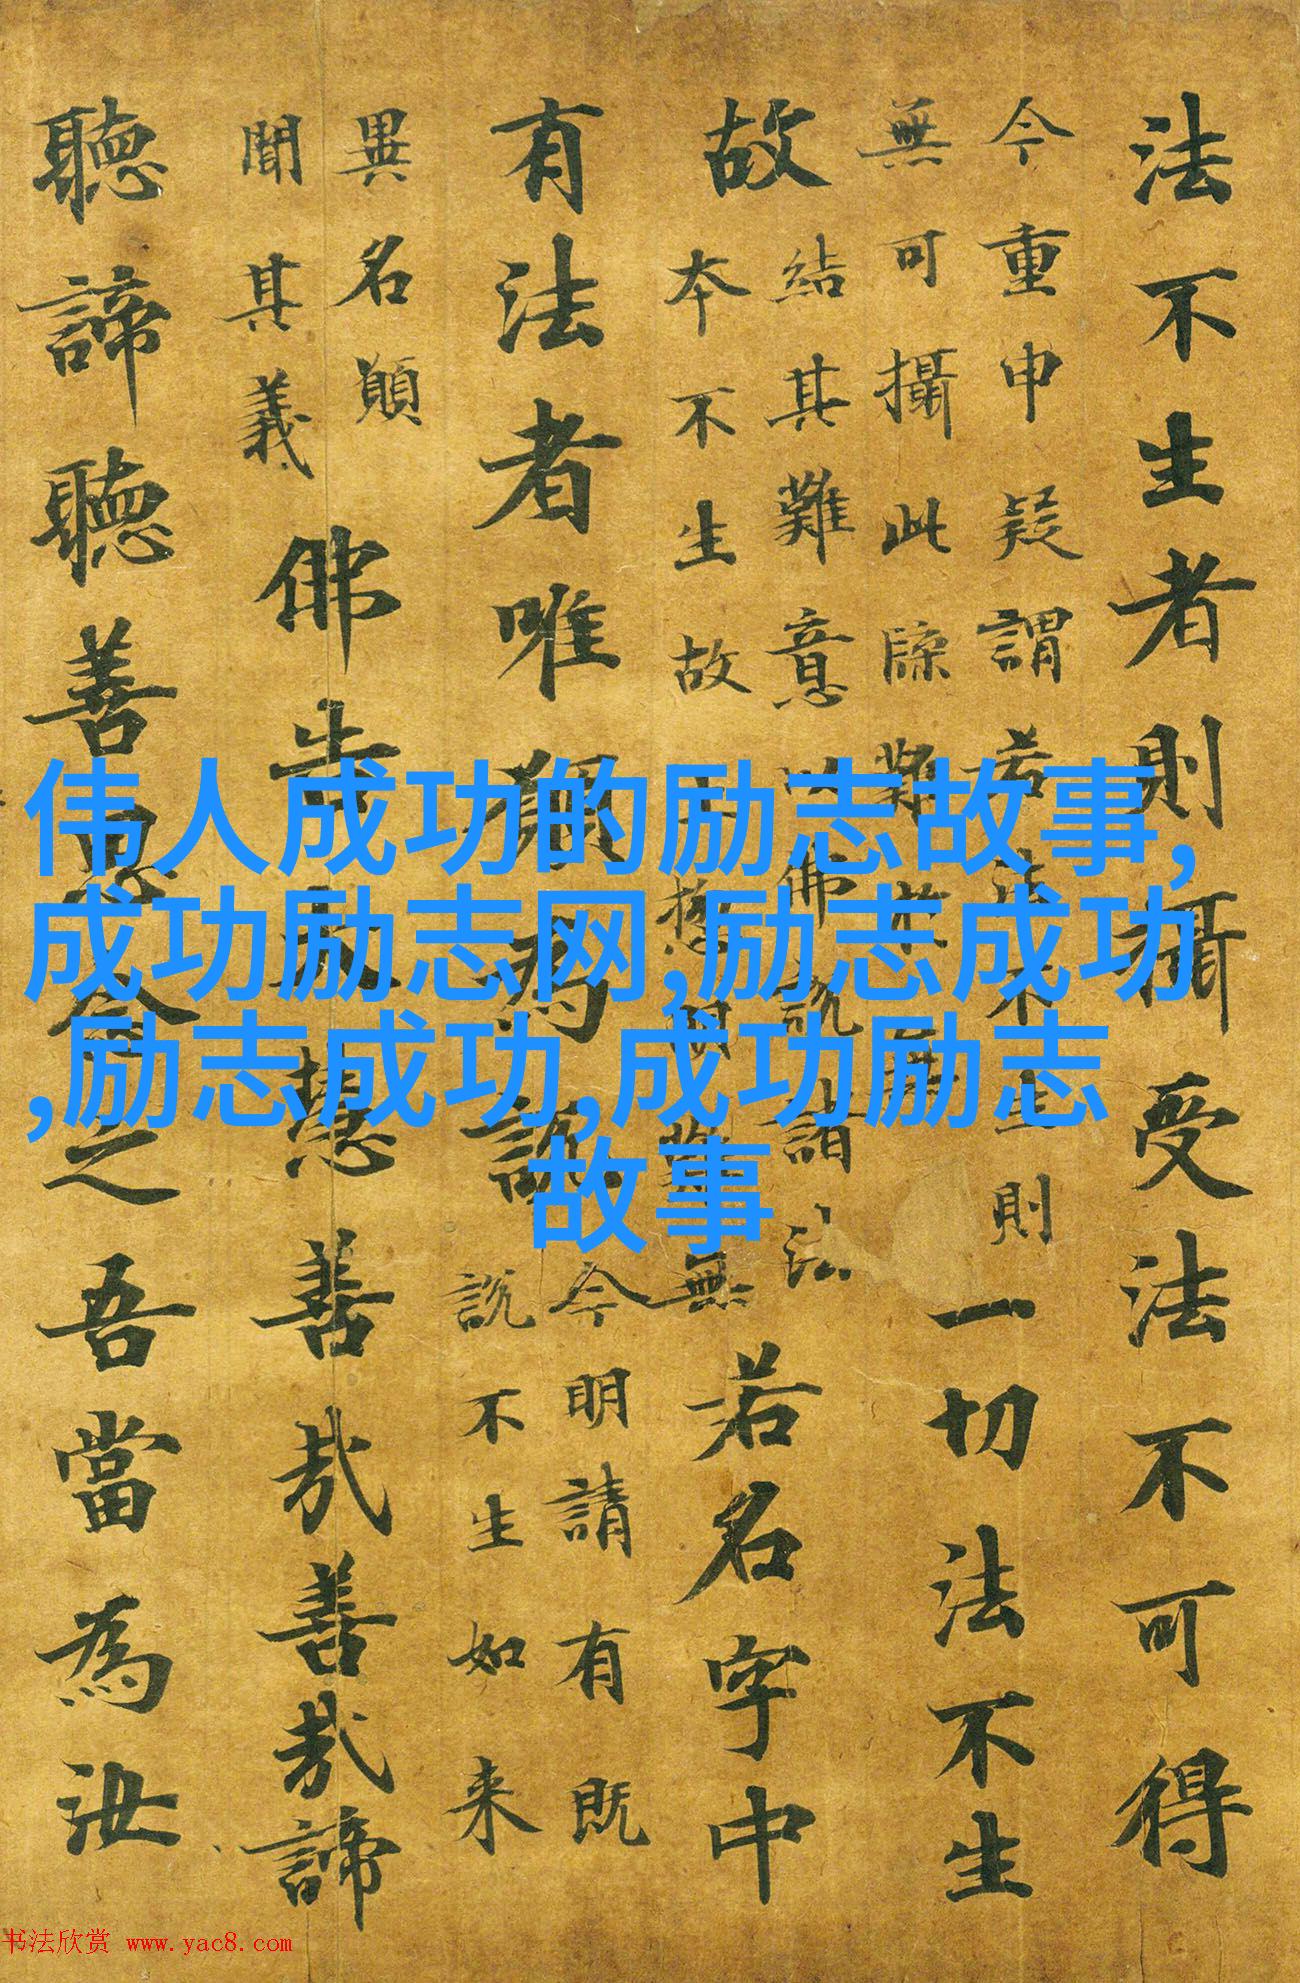 法不生者則攝受法不可得
今重申疑謂若法不生則
無可攝此牒難
一切法不生
故
結其難意以佛說諸法
本不生故
若名字中
有法者唯願為說
今明請有既
說不生如来
異名願
聞其義
佛告大慧善哉善哉諦
聽諦聽善思念之吾當為汝
伟人成功的励志故事,
成功励志网,励志成功
,励志成功,成功励志
故事
书法欣赏 www.yac8.com